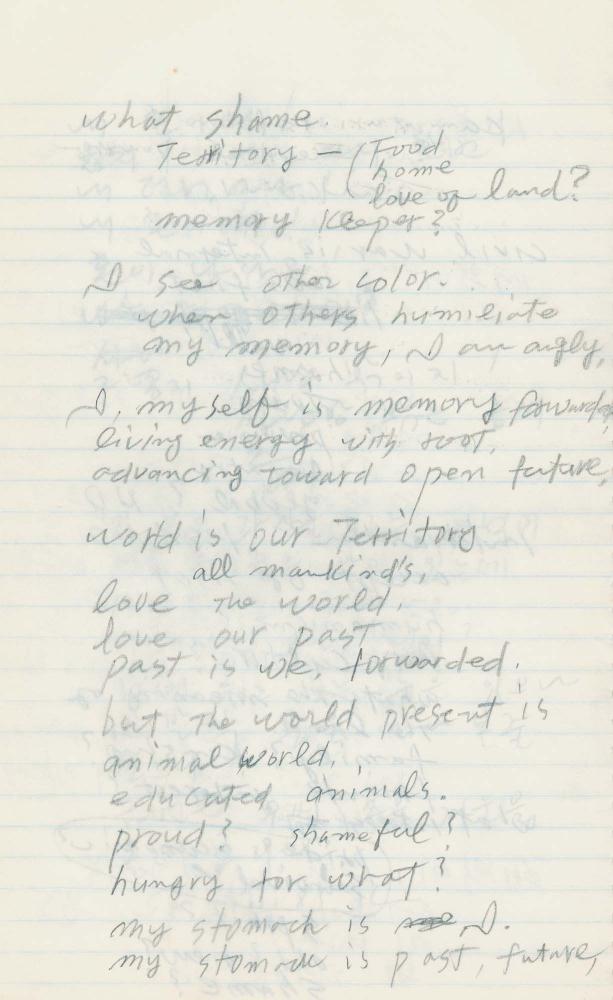 what shame.
Territory — ( Food
home
love of land?
memory keeper?
I see other color.
when others humiliate
my memory, I am angly,
I, myself is memory forwarded
living energy with root.
advancing toward open future,
world is our Territory
all mankind's,
love the world.
love our past
past is we, forwarded.
but the world present is
animal world.
educated animals.
proud? shameful?
hungry for what?
my stomach is I.
my stomach is past, future,